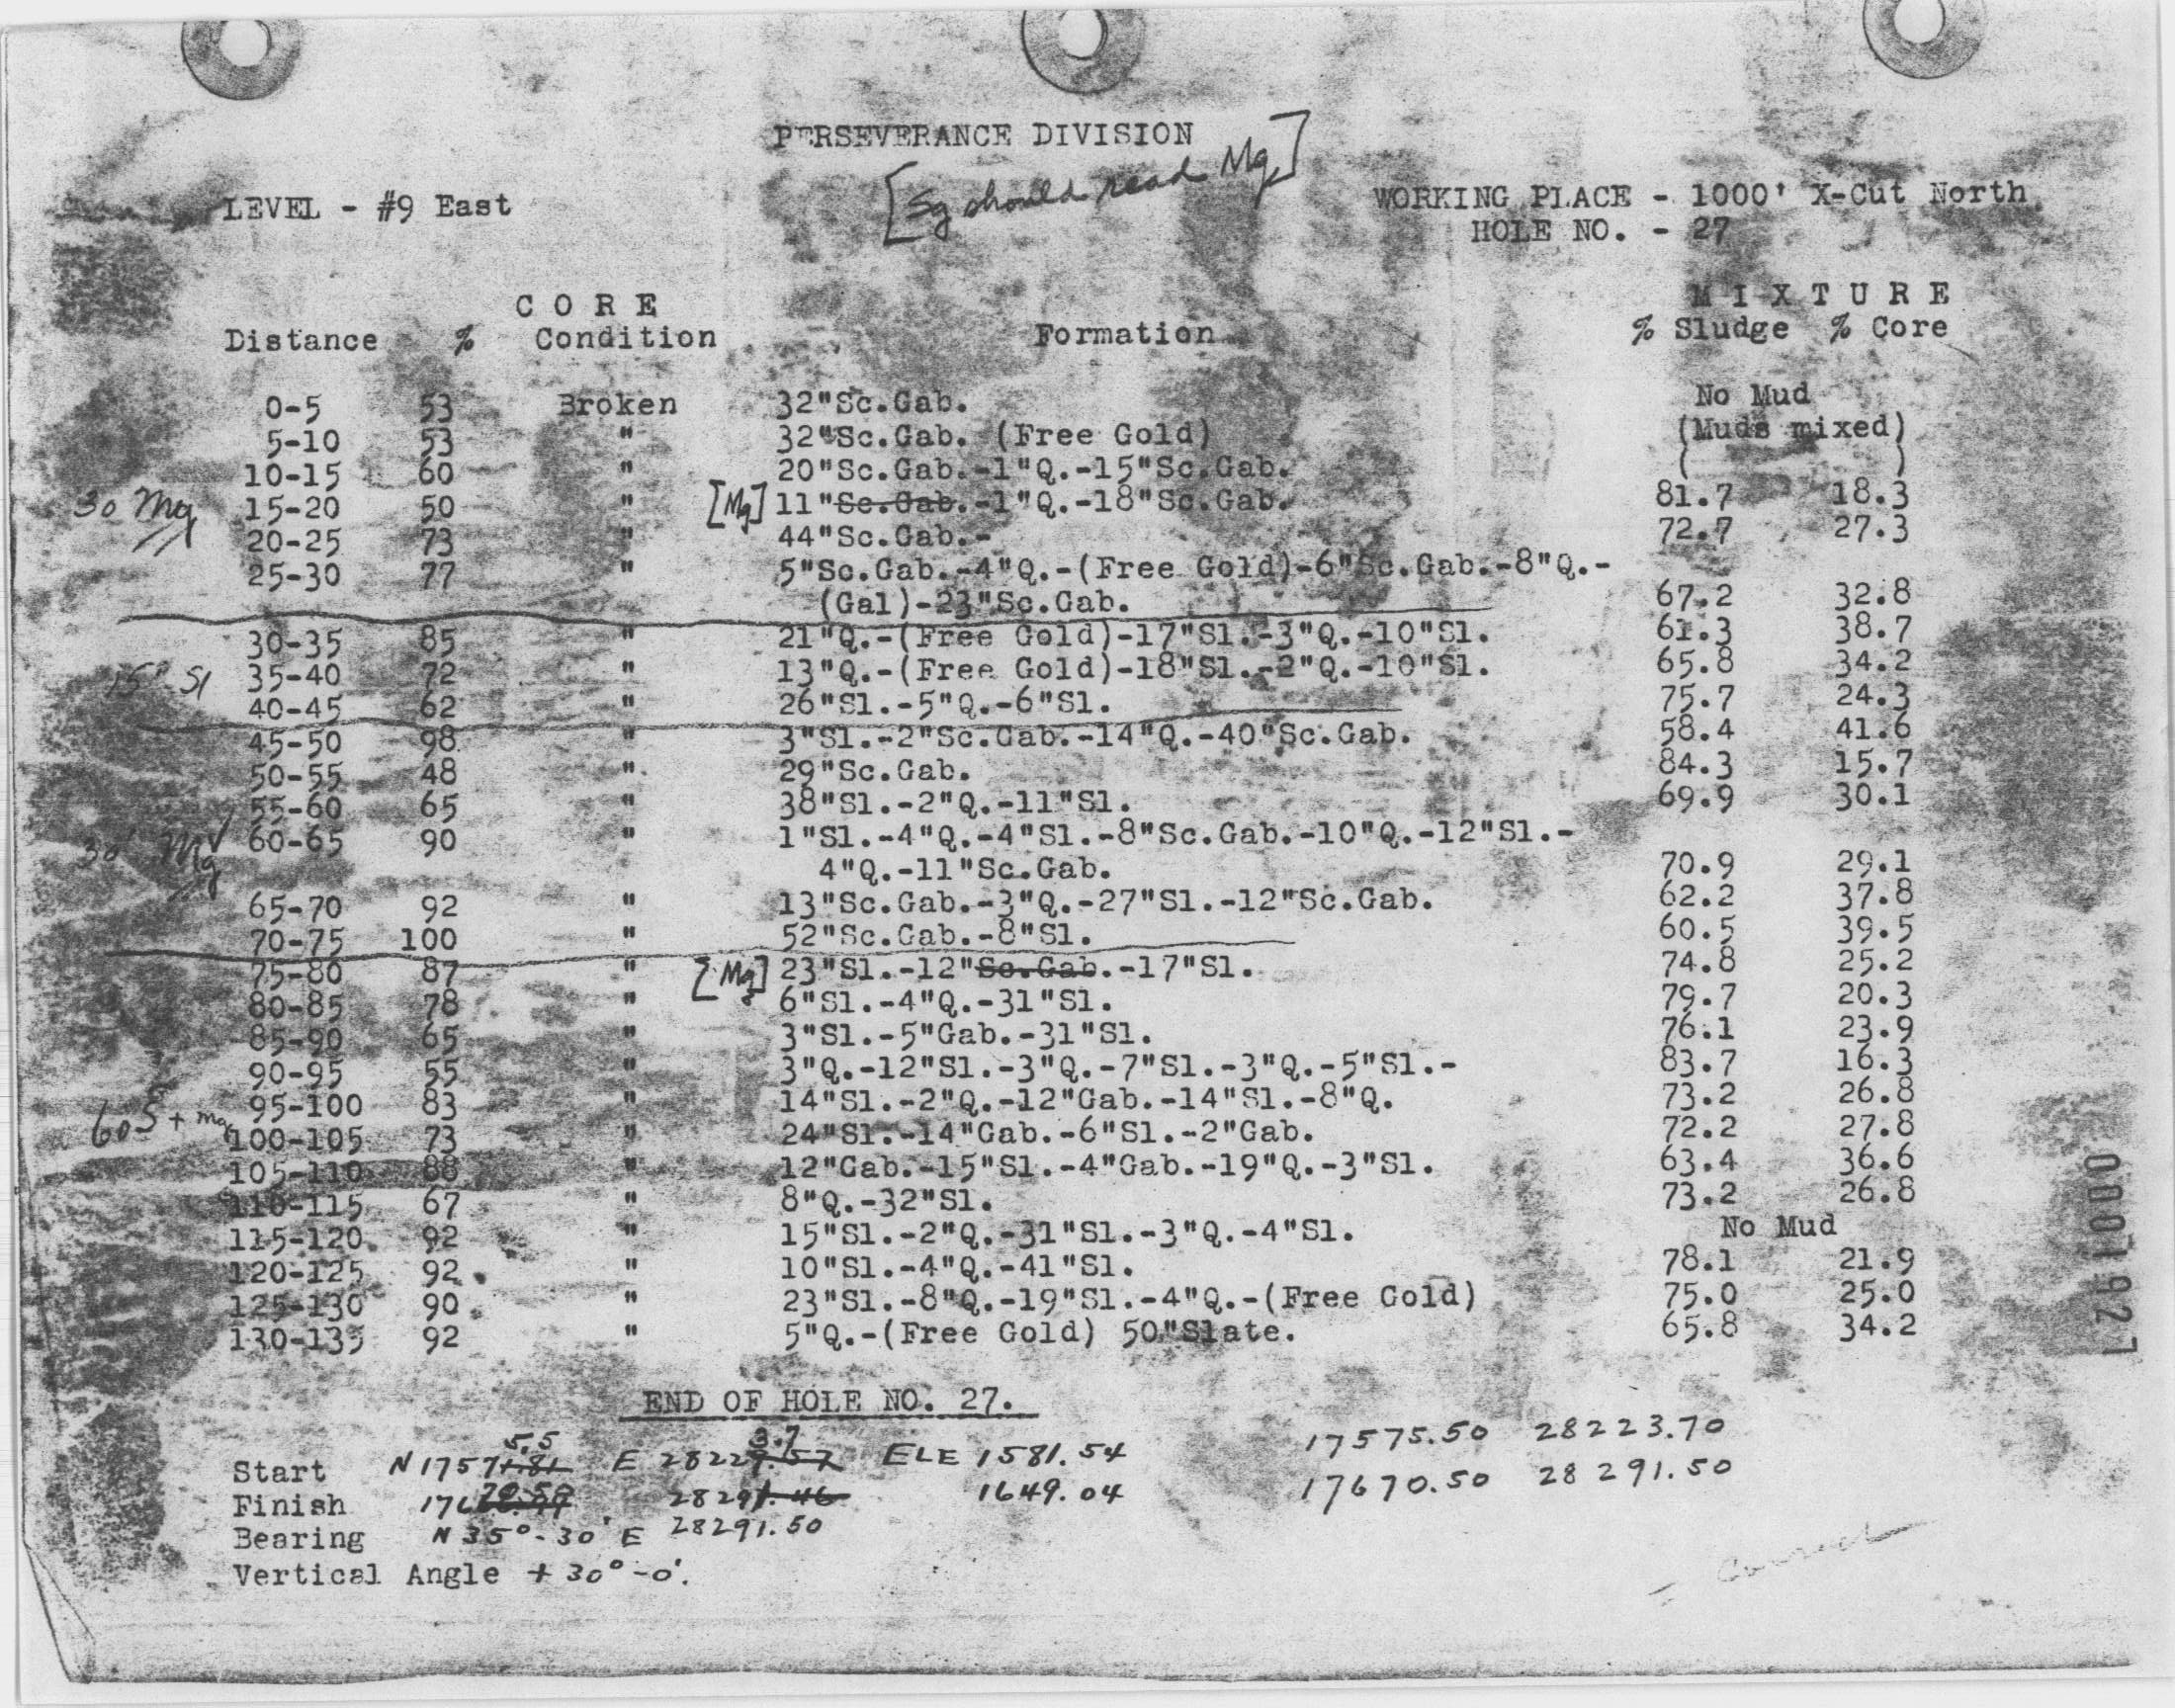 PERSEVERANCE DIVISION
[Sg should read Mg]
LEVEL - #9 East
WORKING PLACE - 1000' X-Cut North
HOLE NO. - 27
C O R E
M I X T U R E
Distance % Condition Formation % Sludge % Core
0-5 53 Broken 32"Sc.Gab. No Mud
5-10 53 " 32"Sc.Gab. (Free Gold) (Muds mixed)
10-15 60 " 20"Sc.Gab.-1"Q.-15"Sc.Gab. ( )
30 Mg 15-20 50 " [Mg] 11"Sc.Gab.-1"Q.-18"Sc.Gab. 81.7 18.3
20-25 73 " 44"Sc.Gab.- 72.7 27.3
25-30 77 " 5"Sc.Gab.-4"Q.-(Free Gold)-6"Sc.Gab.-8"Q.-
(Gal)-23"Sc.Gab. 67.2 32.8
30-35 85 " 21"Q.-(Free Gold)-17"Sl.-3"Q.-10"Sl. 61.3 38.7
15' Sl 35-40 72 " 13"Q.-(Free Gold)-18"Sl.-2"Q.-10"Sl. 65.8 34.2
40-45 62 " 26"Sl.-5"Q.-6"Sl. 75.7 24.3
45-50 98 " 3"Sl.-2"Sc.Gab.-14"Q.-40"Sc.Gab. 58.4 41.6
50-55 48 " 29"Sc.Gab. 84.3 15.7
55-60 65 " 38"Sl.-2"Q.-11"Sl. 69.9 30.1
30' Mg 60-65 90 " 1"Sl.-4"Q.-4"Sl.-8"Sc.Gab.-10"Q.-12"Sl.-
4"Q.-11"Sc.Gab. 70.9 29.1
65-70 92 " 13"Sc.Gab.-3"Q.-27"Sl.-12"Sc.Gab. 62.2 37.8
70-75 100 " 52"Sc.Gab.-8"Sl. 60.5 39.5
75-80 87 " [Mg] 23"Sl.-12"Sc.Gab.-17"Sl. 74.8 25.2
80-85 78 " 6"Sl.-4"Q.-31"Sl. 79.7 20.3
85-90 65 " 3"Sl.-5"Gab.-31"Sl. 76.1 23.9
90-95 55 " 3"Q.-12"Sl.-3"Q.-7"Sl.-3"Q.-5"Sl.- 83.7 16.3
95-100 83 " 14"Sl.-2"Q.-12"Gab.-14"Sl.-8"Q. 73.2 26.8
60 S + mg 100-105 73 " 24"Sl.-14"Gab.-6"Sl.-2"Gab. 72.2 27.8
105-110 88 " 12"Gab.-15"Sl.-4"Gab.-19"Q.-3"Sl. 63.4 36.6
110-115 67 " 8"Q.-32"Sl. 73.2 26.8
115-120 92 " 15"Sl.-2"Q.-31"Sl.-3"Q.-4"Sl. No Mud
120-125 92 " 10"Sl.-4"Q.-41"Sl. 78.1 21.9
125-130 90 " 23"Sl.-8"Q.-19"Sl.-4"Q.-(Free Gold) 75.0 25.0
130-135 92 " 5"Q.-(Free Gold) 50"Slate. 65.8 34.2
0001927
END OF HOLE NO. 27.
5.5 3.7
Start N 17571.81 E 28229.57 ELE 1581.54 17575.50 28223.70
70.50
Finish 176 28291.46 1649.04 17670.50 28291.50
Bearing N 35°-30' E 28291.50
Vertical Angle + 30°-0'.